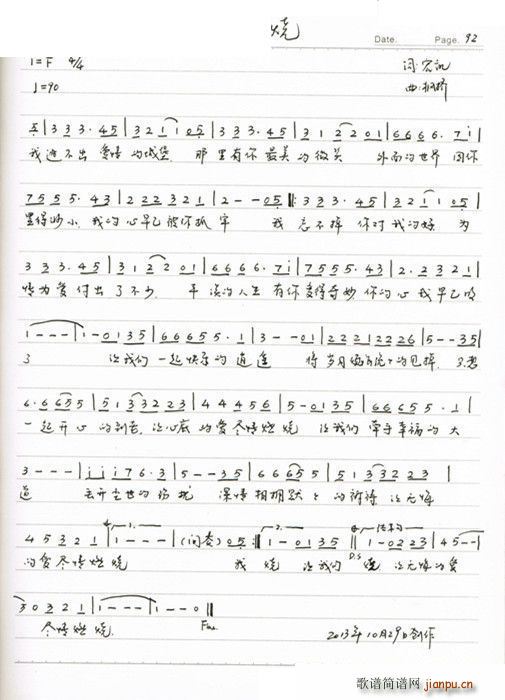 烧
Date. Page. 92
1=F 4/4 词:宏
♩=90 曲:
5|3 3 3. 4 5|3 2 1 1 0 5|3 3 3. 4 5|3 1 2 2 0 1|6 6 6 6. 7 i|
我进不出 爱情的城堡 那里有你最美的微笑 外面的世界 因你
7 5 5 5. 4 3|2 2 2 3 2 1|2 - - 0 5‖:3 3 3. 4 5|3 2 1 1 0 5|
变得妙小 我的心早已被你抓牢 我忘不掉 你对我的好 为
3 3 3. 4 5|3 1 2 2 0 1|6 6 6 6. 7 i|7 5 5 5. 4 3|2. 2 3 2 1|
情为爱付出了不少 平淡的人生 有你变得奇妙 你的心我早已明
1 - - -|1 - 0 1 3 5|6 6 6 5 5. 1|3 - - 0 1|2 2 2 1 2 2 2 6|5 - - 3 5|
了 让我们一起快乐的逍遥 将岁月 的 掉 只想
6. 6 6 5 5|5 1 3 3 2 2 3|4 4 4 4 5 6|5 - 0 1 3 5|6 6 6 5 5. 1|
一起开心的 让心底的爱尽情燃烧 让我们牵手幸福的大
3 - - -|i i i 7 6. 3|5 - - 3 5|6 6 6 5 5|5 1 3 3 2 2 3|
道 去开尘世的纷扰 深情相拥默々的祈祷 让无悔
4 5 3 2 1|1 - - -|(间奏) 0 5:‖1 - 0 1 3 5‖1 - 0 2 2 3|4 5 - -|
1. 2. 结束句
的爱尽情燃烧 我 烧 让我们 D.S 烧 让无悔的爱
3 0 3 2 1|1 - - -|1 - - 0‖
尽情燃烧 Fine 2013年10月29日创作
歌谱简谱网
jianpu.cn